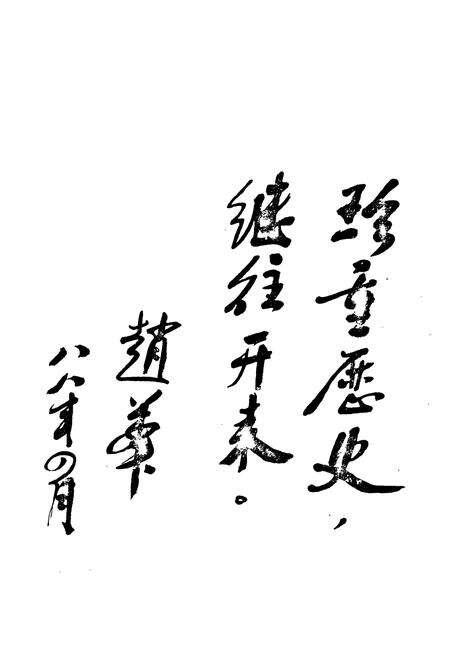 珍重歷史，
继往开来。
趙華
八八年四月